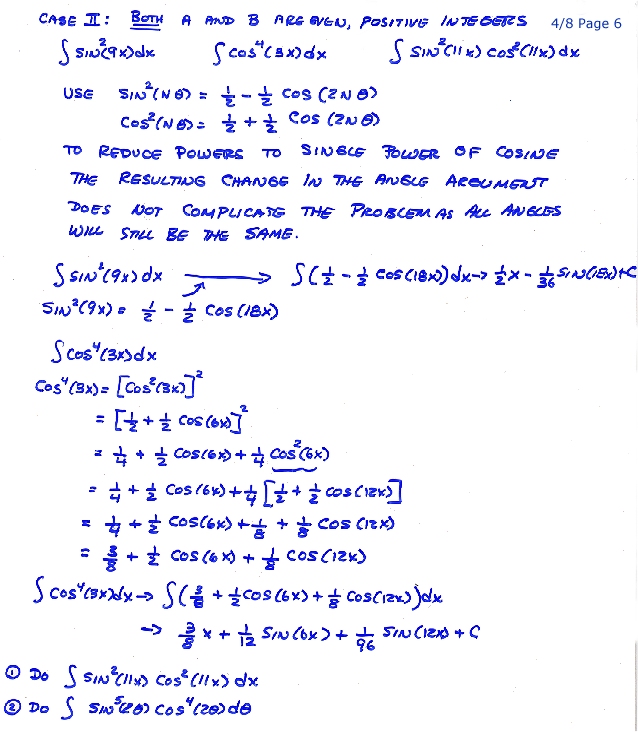 CASE II: BOTH A AND B ARE EVEN, POSITIVE INTEGERS 4/8 Page 6
∫ sin²(9x)dx ∫ cos⁴(3x)dx ∫ sin²(11x) cos²(11x) dx
USE sin²(Nθ) = 1/2 - 1/2 cos(2Nθ)
cos²(Nθ) = 1/2 + 1/2 cos(2Nθ)
TO REDUCE POWERS TO SINGLE POWER OF COSINE
THE RESULTING CHANGE IN THE ANGLE ARGUMENT
DOES NOT COMPLICATE THE PROBLEM AS ALL ANGLES
WILL STILL BE THE SAME.
∫ sin²(9x) dx → ∫(1/2 - 1/2 cos(18x))dx → 1/2x - 1/36 sin(18x)+C
sin²(9x) = 1/2 - 1/2 cos(18x)
∫ cos⁴(3x)dx
cos⁴(3x) = [cos²(3x)]²
= [1/2 + 1/2 cos(6x)]²
= 1/4 + 1/2 cos(6x) + 1/4 cos²(6x)
= 1/4 + 1/2 cos(6x) + 1/4 [1/2 + 1/2 cos(12x)]
= 1/4 + 1/2 cos(6x) + 1/8 + 1/8 cos(12x)
= 3/8 + 1/2 cos(6x) + 1/8 cos(12x)
∫ cos⁴(3x)dx → ∫(3/8 + 1/2 cos(6x) + 1/8 cos(12x))dx
→ 3/8 x + 1/12 sin(6x) + 1/96 sin(12x) + C
① Do ∫ sin²(11x) cos²(11x) dx
② Do ∫ sin⁵(2θ) cos⁴(2θ) dθ